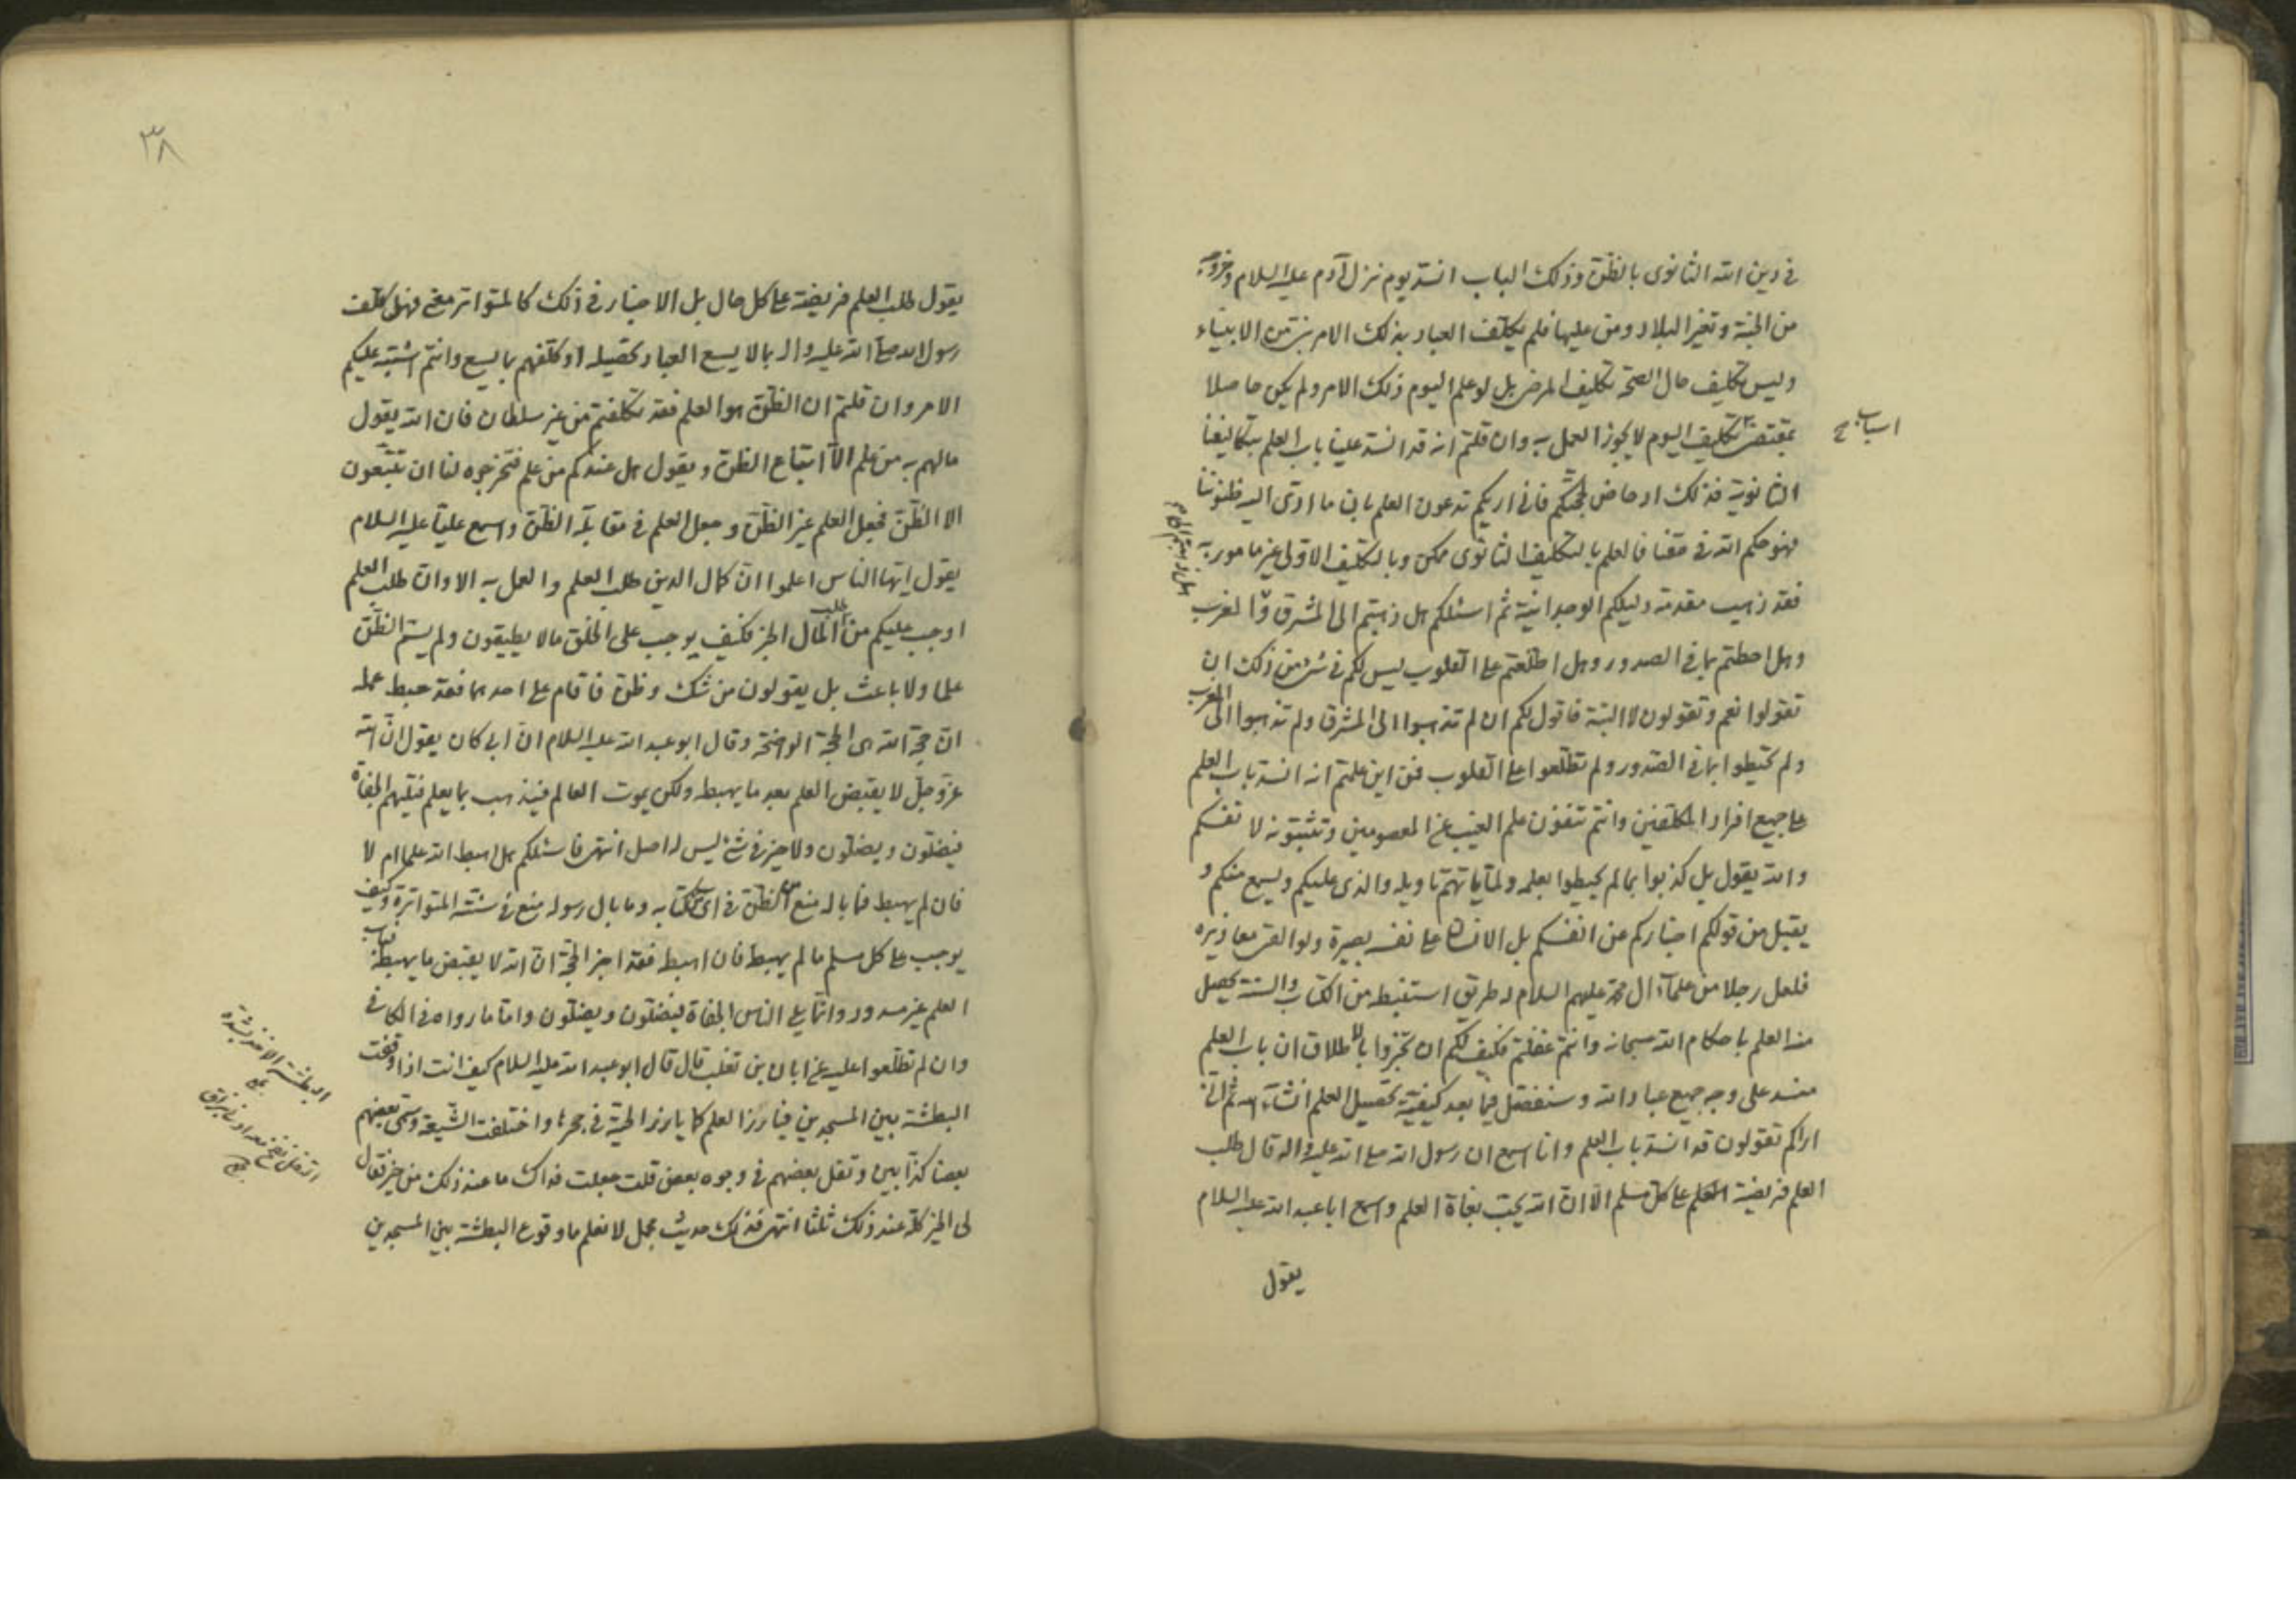 في دين الله الثانوى بالظن وذلك الباب انسد يوم نزل آدم عليه السلام وخروجه
من الجنة وتغير البلاد ومن عليها فلم يكلف العباد بذلك الامر نبى من الانبياء
وليس تكليف حال الصحة تكليف المرض بل لو علم اليوم ذلك الامر ولم يكن حاصلا
بمقتضى تكليف اليوم لا يجوز العمل به وان قلتم انه قد انسد علينا باب العلم بتكاليفنا
الثانوية فذلك ادحاض لحجتكم فانى اريكم تدعون العلم بان ما ادى اليه ظنوننا
فهو حكم الله في حقنا فالعلم بالتكليف الثانوى ممكن وبالتكليف الاولى غير مامور به
فقد ذهب مقدمة دليلكم الوجدانية ثم اسئلكم هل ذهبتم الى المشرق والمغرب
وهل احطتم بما في الصدور وهل اطلعتم على القلوب ليس لكم في شئ من ذلك ان
تقولوا نعم وتقولون لا البتة فاقول لكم ان لم تذهبوا الى المشرق ولم تذهبوا الى المغرب
ولم تحيطوا بما في الصدور ولم تطلعوا على القلوب فمن اين علمتم انه انسد باب العلم
على جميع افراد المكلفين وانتم تنفون علم الغيب عن المعصومين وتثبتونه لانفسكم
والله يقول بل كذبوا بما لم يحيطوا بعلمه ولما ياتهم تاويله والذى عليكم ويسمع منكم و
يقبل من قولكم اخباركم عن انفسكم بل الانسان على نفسه بصيرة ولو القى معاذيره
فلعل رجلا من علماء آل محمد عليهم السلام له طريق استنبطه من الكتاب والسنة يحصل
منه العلم باحكام الله سبحانه وانتم غفلتم فكيف لكم ان تخبروا بالاطلاق ان باب العلم
منسد على وجه جميع عباد الله وسنفصل فيما بعد كيفية تحصيل العلم انشاء الله ثم انى
اراكم تقولون قد انسد باب العلم وانا اسمع ان رسول الله صلى الله عليه واله قال طلب
العلم فريضة على كل مسلم الا ان الله يحب بغاة العلم واسمع ابا عبد الله عليه السلام
يقول
اسباب ح
٣٨
يقول طلب العلم فريضة على كل حال بل الاخبار في ذلك كالمتواتر معنى فهل كلف
رسول الله صلى الله عليه واله بما لا يسع العباد تحصيله او كلفهم بما يسع وانتم اشتبه عليكم
الامر وان قلتم ان الظن هو العلم فقد تكلفتم من غير سلطان فان الله يقول
مالهم به من علم الا اتباع الظن ويقول هل عندكم من علم فتخرجوه لنا ان تتبعون
الا الظن فجعل العلم غير الظن وجعل العلم في مقابلة الظن واسمع عليا عليه السلام
يقول ايها الناس اعلموا ان كمال الدين طلب العلم والعمل به الا وان طلب العلم
اوجب عليكم من طلب المال الخبر فكيف يوجب على الخلق مالا يطيقون ولم يسم الظن
علما ولا باعث بل يقولون من شك وظن فاقام على احدهما فقد حبط عمله
ان حجة الله هى الحجة الواضحة وقال ابو عبد الله عليه السلام ان ابى كان يقول ان الله
عز وجل لا يقبض العلم بعد ما يهبطه ولكن يموت العالم فيذهب بما يعلم فتليهم الجفاة
فيضلون ويضلون ولا خير في شئ ليس له اصل انتهى فاسئلكم هل اهبط الله علما ام لا
فان لم يهبط فما باله منع عن الظن في اى كتابه وما بال رسوله منع في سنته المتواترة وكيف
يوجب على كل مسلم ما لم يهبط فان اهبط فقد اخبر الحجة ان الله لا يقبض ما يهبط فباب
العلم غير مسدود وانما يلى الناس الجفاة ليضلون ويضلون واما ما رواه في الكافى
وان لم تطلعوا عليه عن ابان بن تغلب قال قال ابو عبد الله عليه السلام كيف انت اذا وقعت
البطشة بين المسجدين فيارز العلم كما يارز الحية في جحرها واختلفت الشيعة وسمى بعضهم
بعضا كذابين وتفل بعضهم في وجوه بعض قلت جعلت فداك ما عند ذلك من خير فقال
لى الخير كله عند ذلك ثلثا انتهى فذلك حديث مجمل لا نعلم ما وقوع البطشة بين المسجدين
البطشة الاخذ بشدة